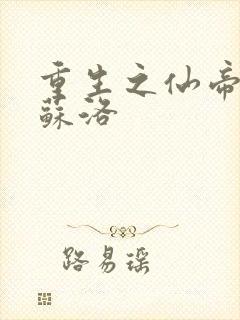 重生之仙帝
蘇洛
路易瑶